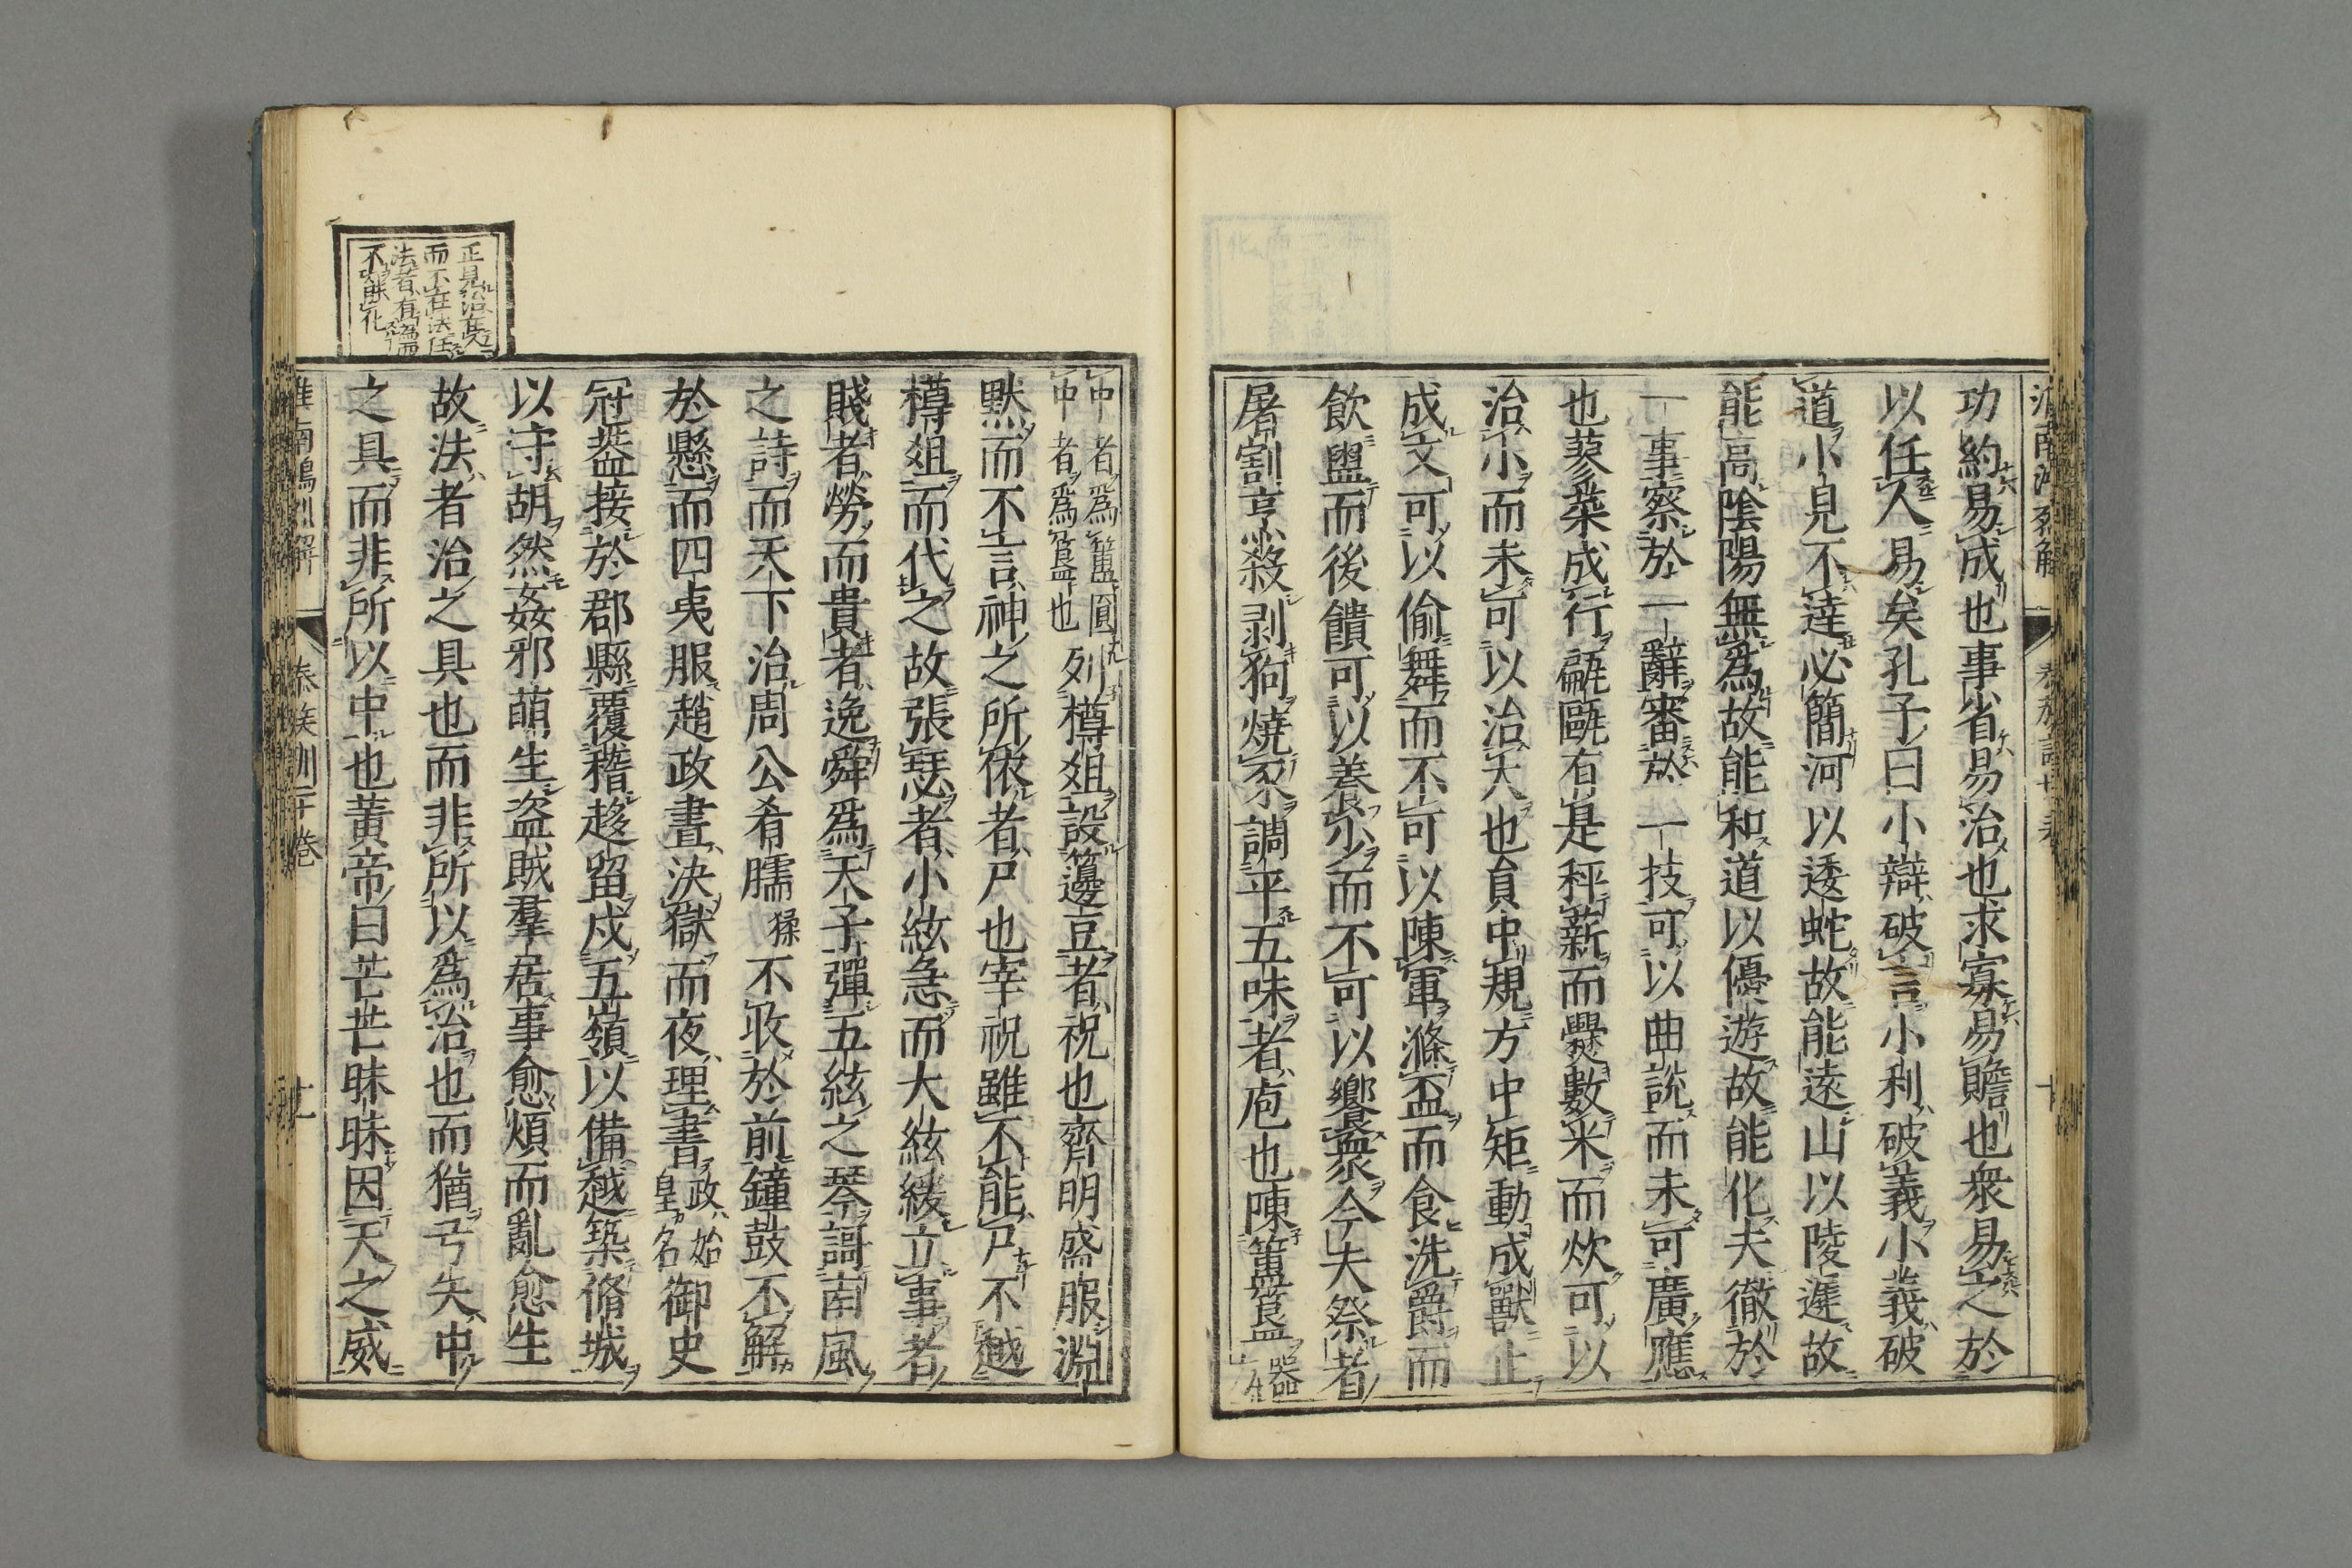 功約易成也事省易治也求寡易贍也衆易之於
以任人易矣孔子曰小辯破言小利破義小義破
道小見不達必簡河以逶蛇故能遠山以陵遲故
能高陰陽無爲故能和道以優遊故能化夫徹於
一事察於一辭審於一技可以曲說而未可廣應
也蓼菜成行甂甌有是秤薪而爨數米而炊可以
治小而未可以治大也員中規方中矩動成獸止
成文可以偷舞而不可以陳軍滌盃而食洗爵而
飲盥而後饋可以養少而不可以饗衆今夫祭者
屠割烹殺剥狗燒豕調平五味者庖也陳簠簋器
中者爲簠圓
中者爲簋也列樽俎設籩豆者祝也齊明盛服淵
默而不言神之所依者尸也宰祝雖不能尸不越
樽俎而代之故張瑟者小絃急而大絃緩立事者
賤者勞而貴者逸舜爲天子彈五絃之琴謌南風
之詩而天下治周公肴臑不收於前鐘鼓不解
於懸而四夷服趙政晝決獄而夜理書政始
皇名御史
冠蓋接於郡縣覆稽趍留戍五嶺以備越築脩城
以守胡然姦邪萌生盗賊羣居事愈煩而亂愈生
故法者治之具也而非所以爲治也而猶弓矢中
之具而非所以中也黃帝曰芒芒昧昧因天之威
正見治在
而不在法任
法者有
不能化
淮南鴻烈解
泰族訓二十巻
十一